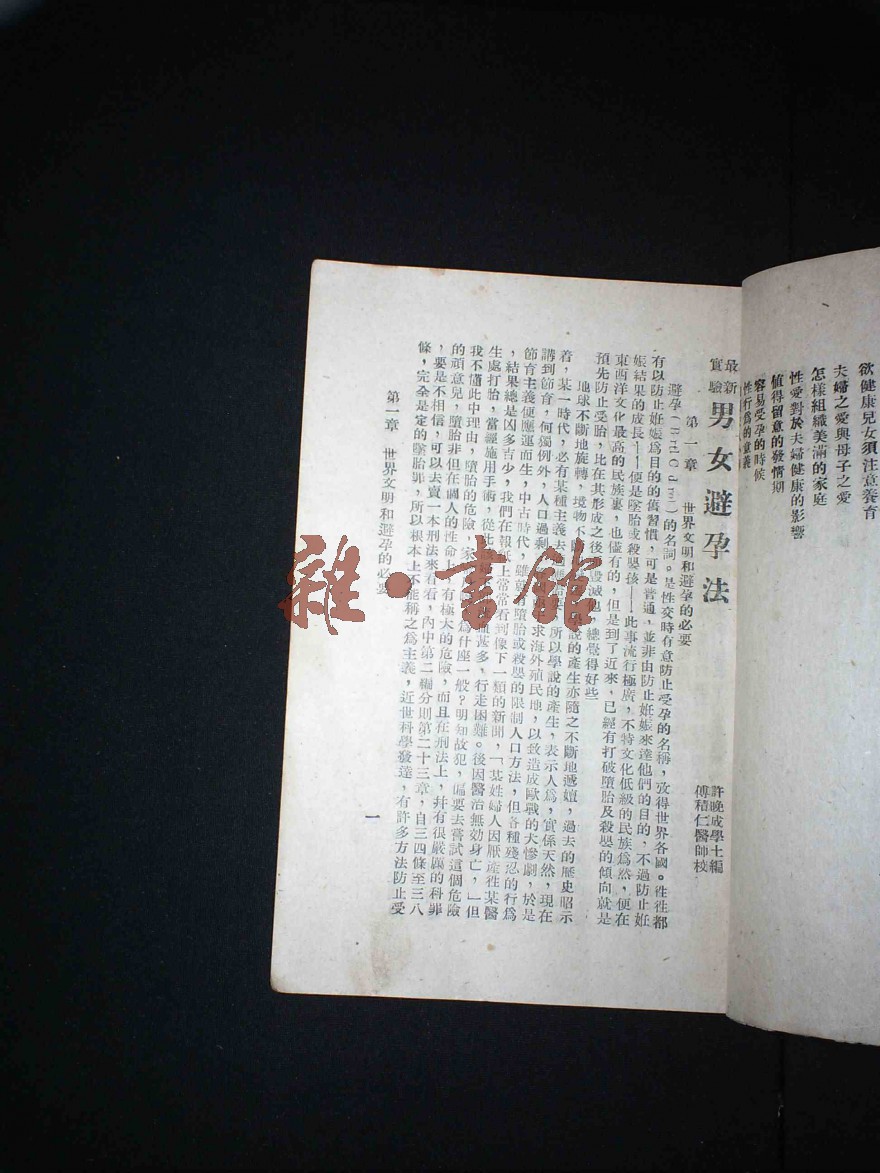 欲健康兒女須注意養育
夫婦之愛與母子之愛
怎樣組織美滿的家庭
性愛對於夫婦健康的影響
值得留意的發情期
容易受孕的時候
性行為的意義
最新
實驗
男女避孕法
許晚成學士編
傅積仁醫師校
第一章 世界文明和避孕的必要
避孕(的名詞。是性交時有意防止受孕的名稱，攷得世界各國。往往都
有以防止妊娠為目的的舊習慣，可是普通，並非由防止妊娠來達他們的目的，不過防止妊
娠結果的成長——便是墜胎或殺嬰孩——此事流行極廣，不特文化低級的民族為然，便在
東西洋文化最高的民族裏，也儘有的，但是到了近來，已經有打破墮胎及殺嬰的傾向就是
預先防止受胎，比在其形成之後毀滅他，總覺得好些
地球不斷地旋轉，境物不學說的產生亦隨之不斷地遞嬗，過去的歷史昭示
着，某一時代，必有某種主義去所以學說的產生，表示人為，實係天然，現在
講到節育，何獨例外，人口過剩求海外殖民地，以致造成歐戰的大慘劇，於是
節育主義便應運而生，中古時代，雖墮胎或殺嬰的限制人口方法，但各種殘忍的行為
，結果總是凶多吉少，我們在報紙上常常看到像下一類的新聞，「某姓婦人因厭產往某醫
生處打胎，當經施用手術，從此甚多，行走困難。後因醫治無効身亡，」但
我不僅此中理由，墮胎的危險，家為什座一般？明知故犯，偏要去嘗試這個危險
的頑意兒，墮胎非但在個人的性命上，有極大的危險，而且在刑法上，幷有很嚴厲的科罪
，要是不相信，可以去賣一本刑法來看看，內中第二編分則第二十三章，自三四條至三八
條，完全是定的墜胎罪，所以根本上不能稱之為主義，近世科學發達，有許多方法防止受
第一章 世界文明和避孕的必要
一
雜·書館